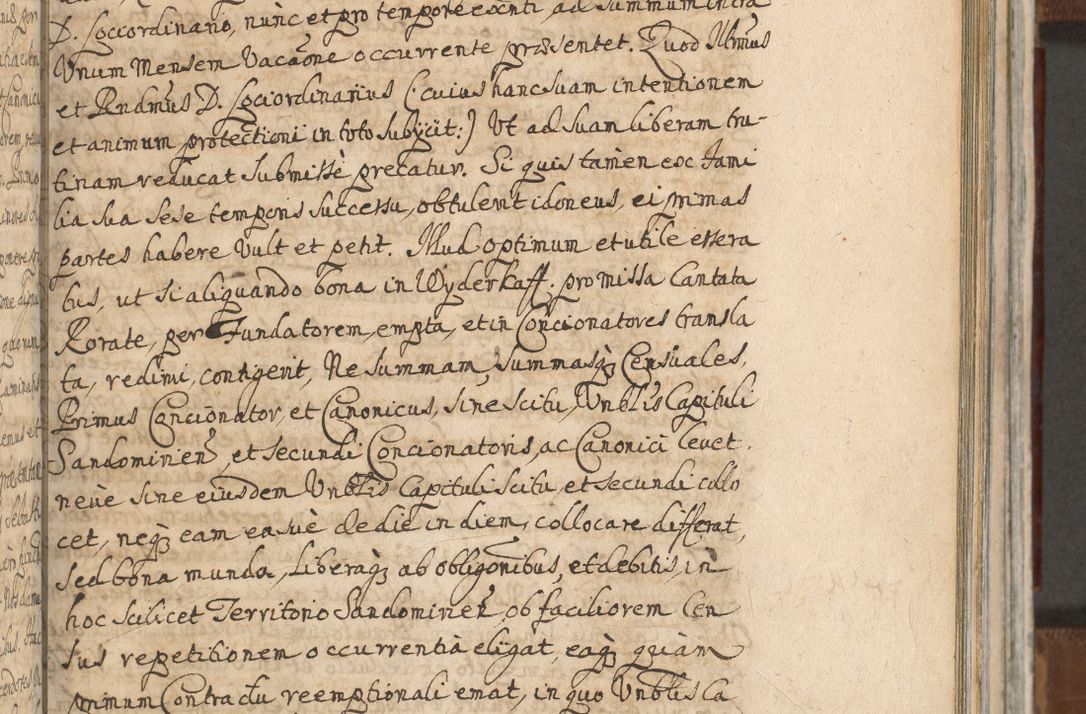 D. Locordinario, nunc et pro tempore existenti, ad summum intra
Unum Mensem Vacaõne occurrente præsentet. Quod Illmus
et Rndmus D. Lociordinarius (: cuius hanc suam intentionem
et animum protectioni in toto subijcit :) Ut ad suam liberam tru-
tinam reducat submissè precatur. Si quis tamen ex Fami
lia sua sese temporis successu, obtulerit idoneus, ei primas
partes habere vult et petit. Illud optimum et utile essera
tus, ut si aliquando bona in Wyderkaff. pro missa Cantata
Rorate, per Fundatorem, empta, et in Concionatores transla
ta, redimi, contigerit, Ne summam, summasq3 Censuales,
Primus Concionator, et Canonicus, sine scitu, Vnblis Capituli
Sandomirien, et secundi Concionatoris, ac Canonici levet.
neue sine eiusdem Vnblis Capituli scitu, et secundi collo
cet, neq3 eam easuè de die in diem, collocare differat,
sed bona munda, liberaq3 ab obligonibus, et debitis, in
hoc scilicet Territorio Sandomirien, ob faciliorem Cen
sus repetitionem occurrentia eligat, eaq3 quàm
primum Contractu reemptionali emat, in quo Vnblis Ca